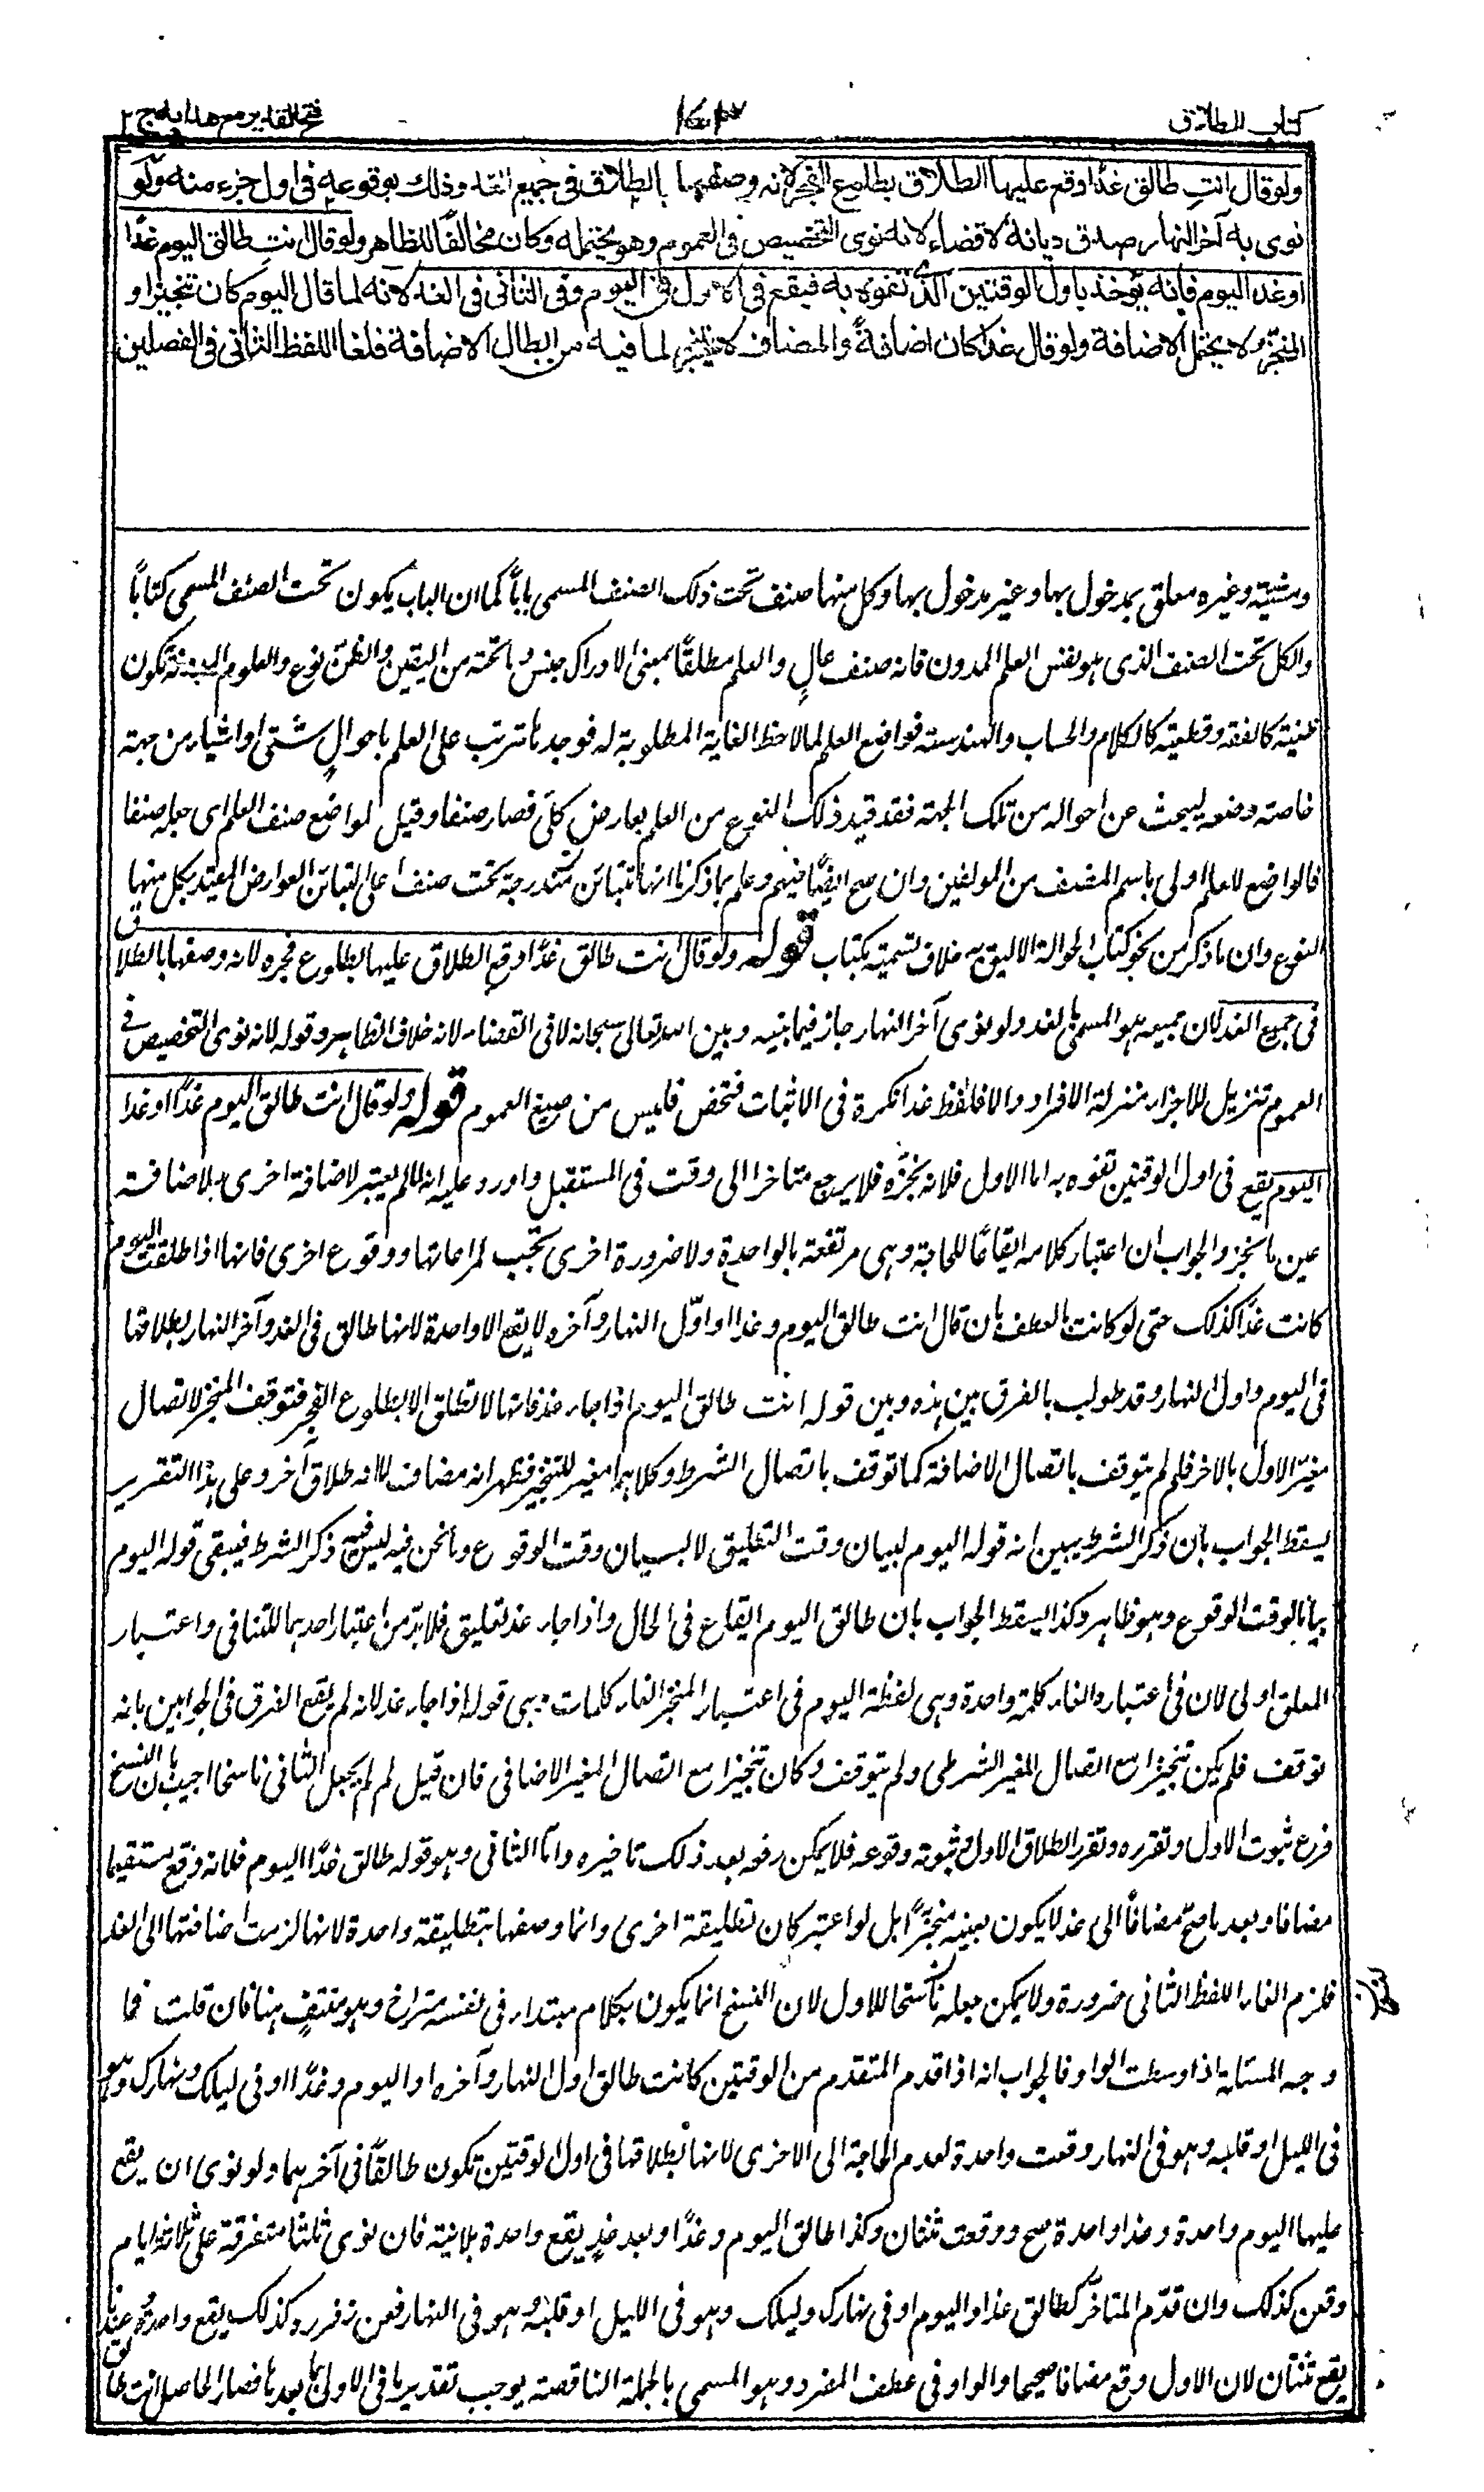 كتاب الطلاق
فتح القدير مع هدايه ج ٢
ولو قال انتِ طالق غدًا وقع عليها الطلاق بطلوع الفجر لانه وصفها بالطلاق في جميع الغد وذلك بوقوعه في اول جزء منه ولو
نوى به آخر النهار صدق ديانة لا قضاء لانه نوى التخصيص في العموم وهو يحتمله وكان مخالفًا للظاهر ولو قال انتِ طالق اليوم غدًا
او غدا اليوم فانه يؤخذ باول الوقتين الذى تفوه به فيقع في الاول في اليوم وفي الثاني في الغد لانه لما قال اليوم كان تنجيزا و
المنجز لا يحتمل الاضافة ولو قال غدًا كان اضافةً والمضاف لا يتنجز لما فيه من ابطال الاضافة فلغا اللفظ الثاني في الفصلين
ومشيته وغيره معلق بمدخول بها وغير مدخول بها وكل منها صنف تحت ذلك الصنف المسمى بابًا كما ان الباب يكون تحت الصنف المسمى كتابًا
والكل تحت الصنف الذى هو نفس العلم المدون فانه صنف عالٍ والعلم مطلقًا بمعنى الادراك جنس وما تحته من اليقين والظن نوع والعلوم المدونة تكون
ظنية كالفقه وقطعية كالكلام والحساب والهندسة فواضع العلم لما لاحظ الغاية المطلوبة له فوجدها تترتب على العلم باحوالٍ شتى او اشياء من جهة
خاصة وضعه ليبحث عن احواله من تلك الجهة فقد قيد ذلك النوع من العلم بعارض كلى فصار صنفا وقيل لواضع صنف العلم اى جعله صنفا
فالواضع للعلم اولى باسم المصنف من المولفين وان صح ايضًا فيهم وعلم بما ذكرنا انها تتباين مندرجة تحت صنف اعلى لتباين العوارض المقيد بكل منها
النوع وان ما ذكر من نحو كتاب الحوالة الاليق به خلاف تسميته بكتاب قوله ولو قال انت طالق غدًا وقع الطلاق عليها بطلوع فجره لانه وصفها بالطلاق
في جميع الغد لان جميعه هو المسمى بالغد ولو نوى آخر النهار جاز فيما بينه وبين الله تعالى سبحانه لا في القضاء لانه خلاف الظاهر وقوله لانه نوى التخصيص في
العموم تنزيل للاجزاء منزلة الافراد والا فلفظ غدا نكرة في الاثبات فتخص فليس من صيغ العموم قوله ولو قال انت طالق اليوم غدًا او غدا
اليوم يقع في اول الوقتين تفوه به اما الاول فلانه نجزه فلا يرجع متاخرا الى وقت في المستقبل واورد عليه انه لما لم يعتبر لاضافة اخرى لا لاضافة
عين ما نجز والجواب ان اعتبار كلامه ايقاعًا للحاجة وهى مرتفعة بالواحدة ولا ضرورة اخرى تجب لمراعاتها ووقوع اخرى فانها اذا طلقت اليوم
كانت غدًا كذلك حتى لو كانت بالعطف بان قال انت طالق اليوم وغدا او اوّل النهار وآخره لا يقع الا واحدة لانها طالق في الغد وآخر النهار بطلاقها
في اليوم واول النهار وقد طولب بالفرق بين هذه وبين قوله انت طالق اليوم اذا جاء غد فانها لا تطلق الا بطلوع الفجر فتوقف المنجز لاتصال
مغيّر الاول بالاخر فلم لم يتوقف باتصال الاضافة كما توقف باتصال الشرط وكلاهما مغير للتنجيز فظهر انه مضاف لا انه طلاق آخر وعلى هذا التقرير
يسقط الجواب بان ذكر الشرط يبين انه قوله اليوم لبيان وقت التعليق لا لبيان وقت الوقوع وما نحن فيه ليس فيه ذكر الشرط فيبقى قوله اليوم
بيانا لوقت الوقوع وهو ظاهر وكذا يسقط الجواب بان طالق اليوم ايقاع في الحال واذا جاء غد تعليق فلا بدّ من اعتبار احدهما للتنافي واعتبار
المعلق اولى لان في اعتباره الغاء كلمة واحدة وهى لفظة اليوم وفي اعتبار المنجز الغاء كلمات وهى قوله اذا جاء غد لانه لم يقع الفرق في الجوابين بانه
توقف فلم يكن تنجيزا مع اتصال المغير الشرطى ولم يتوقف وكان تنجيزا مع اتصال المغير الاضافي فان قيل لم لم يجعل الثانى ناسخا اجيب بان النسخ
فرع ثبوت الاول وتقرره وتقرر الطلاق الاول وثبوته وقوعه فلا يمكن رفعه بعد ذلك تاخيره واما الثاني وهو قوله طالق غدًا اليوم فلانه وقع مستقيما
مضافا وبعد ما صح مضافاً الى غد لا يكون بعينه منجزًا بل لو اعتبر كان تطليقة اخرى وانما وصفها بتطليقة واحدة لانها لزمت اضافتها الى الغد
فلزم الغاء اللفظ الثانى ضرورة ولا يمكن جعله ناسخا للاول لان النسخ انما يكون بكلام مبتدا في نفسه متراخ وهو منتفٍ هنا فان قلت فما
وجه المسئلة اذا وسطت الواو فالجواب انه اذا قدم المتقدم من الوقتين كانت طالق اول النهار وآخره او اليوم وغدًا او في ليلك ونهارك وهو
في الليل او قلبه وهو في النهار وقعت واحدة لعدم الحاجة الى الاخرى لانها بطلاقها في اول الوقتين تكون طالقًا في آخرهما ولو نوى ان يقع
عليها اليوم واحدة وغدا واحدة صح ووقعت ثنتان وكذا طالق اليوم وغدًا وبعد غدٍ يقع واحدة بلا نية فان نوى ثلثا متفرقة على ثلاثة ايام
وقعن كذلك وان قدّم المتاخر كطالق غدا واليوم او في نهارك وليلك وهو في الليل او قلبه وهو في النهار فعن زفر كذلك يقع واحدة وعندنا
يقع ثنتان لان الاول وقع مضافا صحيحا والواو في عطف المفرد وهو المسمى بالجملة الناقصة يوجب تقدير ما في الاولى لما بعدها فصار الحاصل انت طالق